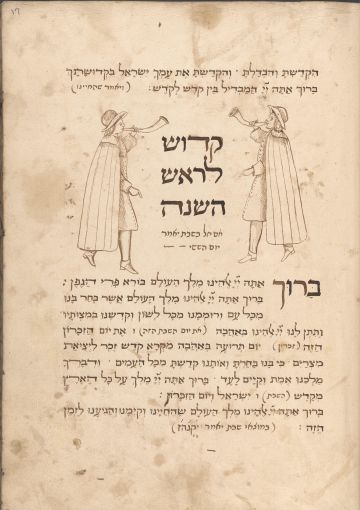 יו
הקדשת והבדלת · והקדשת את עמך ישראל בקדושתך
ברוך אתה יי המבדיל בין קדש לקדש : (ויאמר שהחיינו)
קדוש
לראש
השנה
אם חל בשבת יאמר
יום הששי
ברוך אתה יי אלהינו מלך העולם בורא פרי הגפן :
ברוך אתה יי אלהינו מלך העולם אשר בחר בנו
מכל עם ורוממנו מכל לשון וקדשנו במצותיו
ותתן לנו יי אלהינו באהבה (את יום השבת הזה) ו את יום הזכרון
הזה (זכרון) יום תרועה באהבה מקרא קדש זכר ליציאת
מצרים · כי בנו בחרת ואותנו קדשת מכל העמים · ודברך
מלכנו אמת וקיים לעד · ברוך אתה יי מלך על כל הארץ
מקדש (השבת) ו ישראל ויום הזכרון :
ברוך אתה יי אלהינו מלך העולם שהחיינו וקיימנו והגיענו לזמן
הזה : (במוצאי שבת יאמר יקנהז)